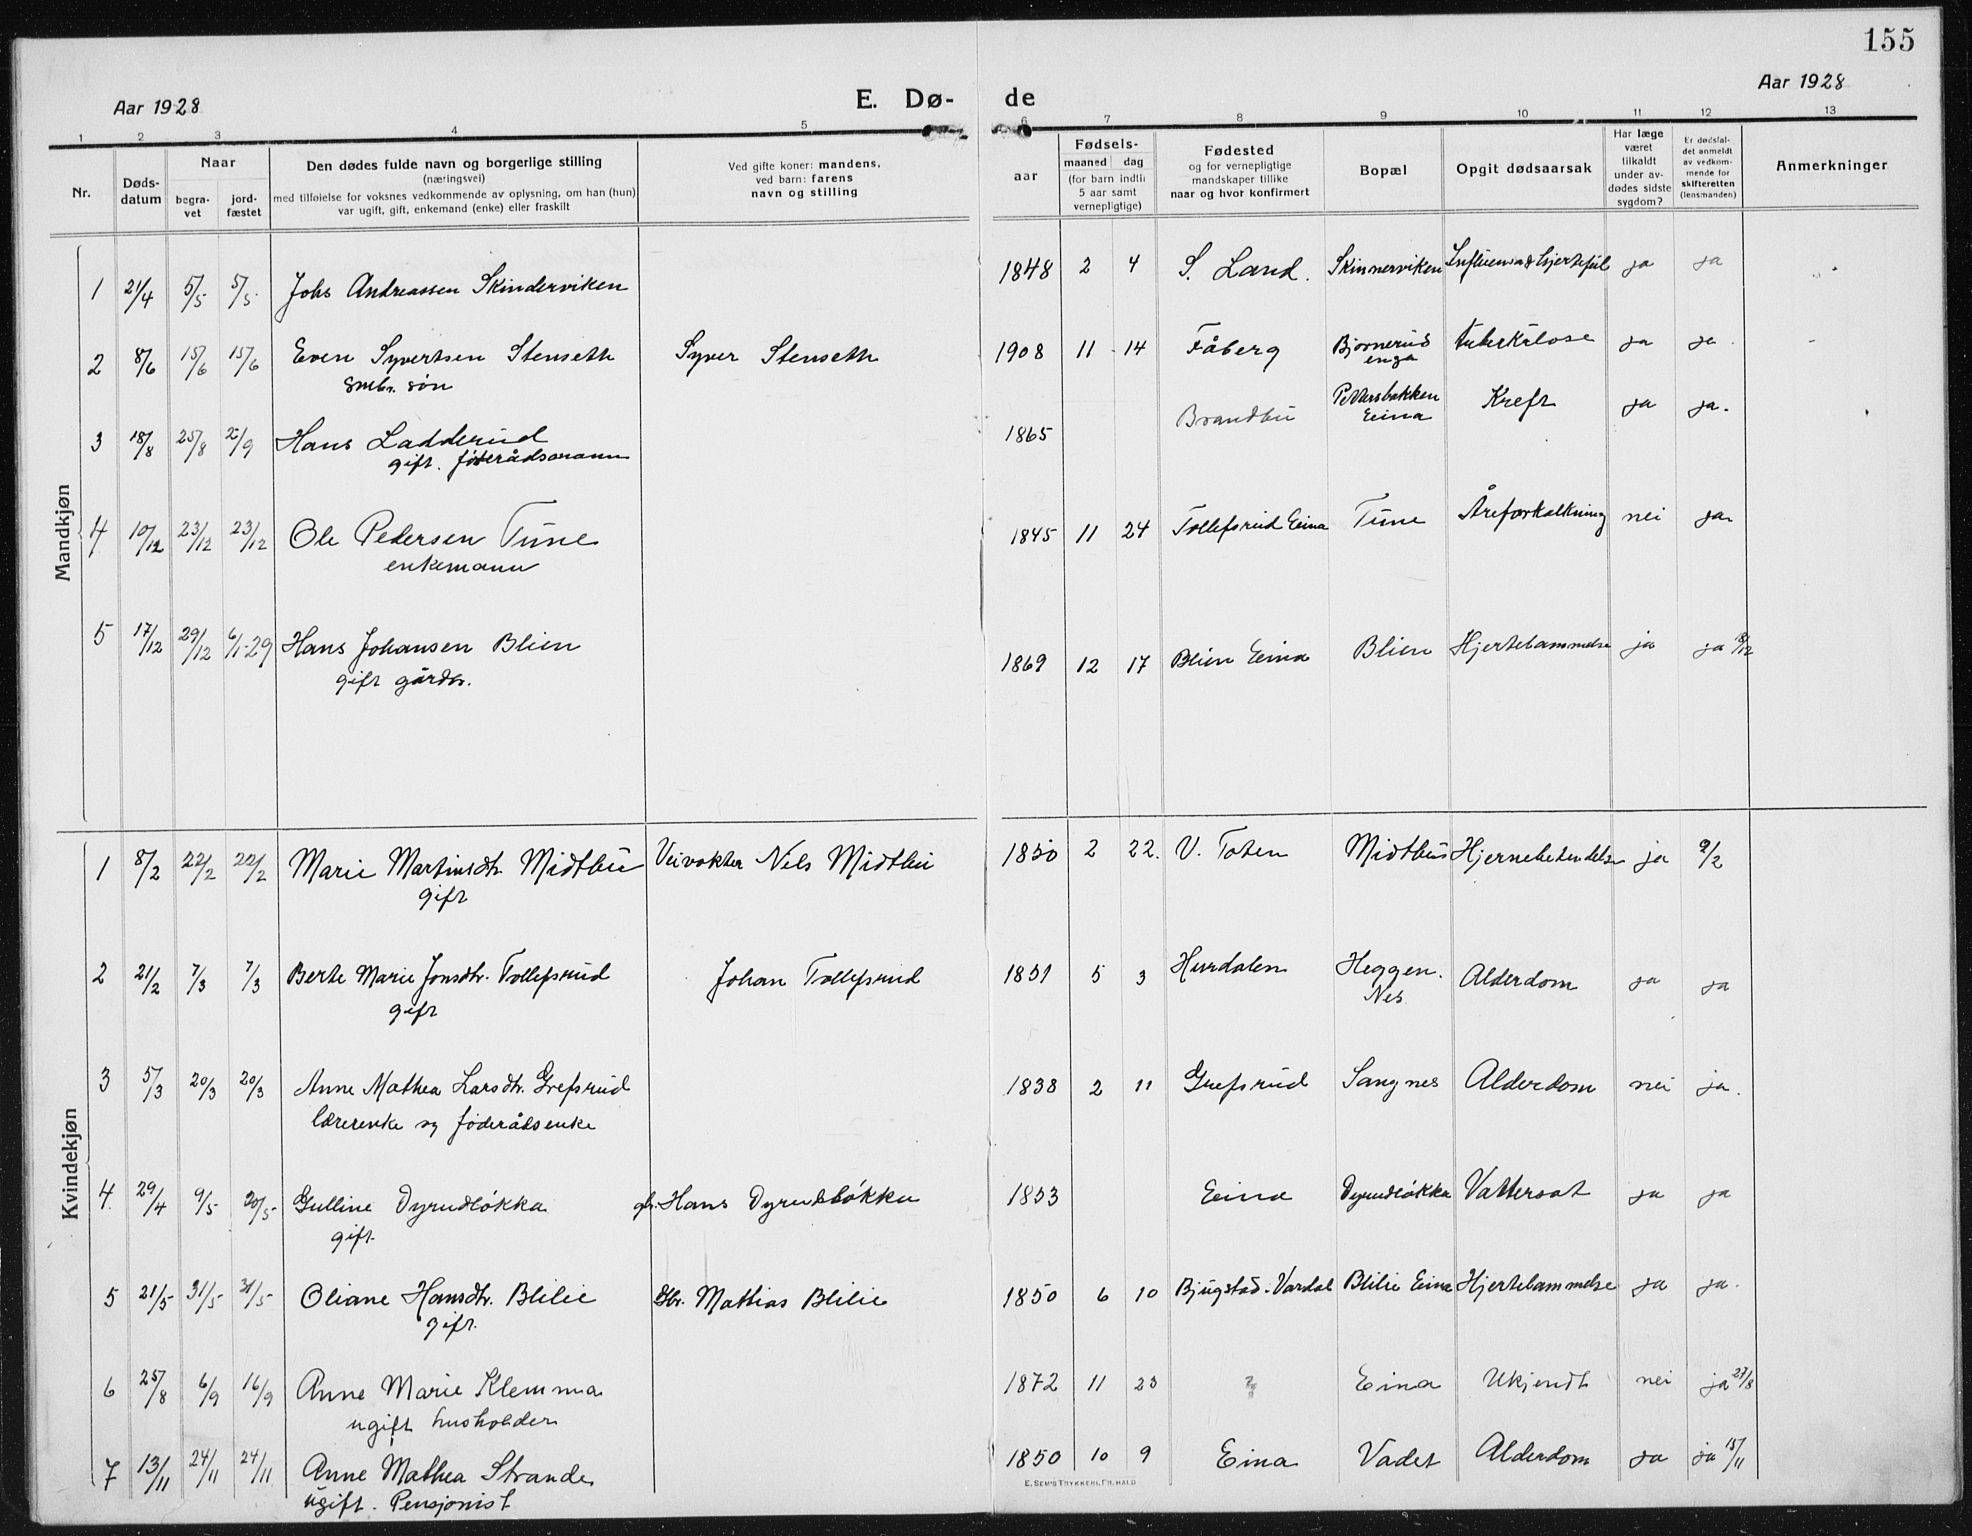 155
Aar 1928
E. Dø- de
Aar 1928
1 2 3 4 5 6 7 8 9 10 11 12 13
Nr.
Døds-
datum
Naar
begra-
vet
jord-
fæstet
Den dødes fulde navn og borgerlige stilling
(næringsvei)
med tilføielse for voksnes vedkommende av oplysning, om han (hun)
var ugift, gift, enkemand (enke) eller fraskilt
Ved gifte koner: mandens,
ved barn: farens
navn og stilling
Fødsels-
aar
maaned dag
(for barn indtil
5 aar samt
vernepligtige)
Fødested
og for vernepligtige
mandskaper tillike
naar og hvor konfirmert
Bopæl
Opgit dødsaarsak
Har læge
været
tilkaldt
under av-
dødes sidste
sygdom?
Er dødsfal-
det anmeldt
av vedkom-
mende for
skifteretten
(lensmanden)
Anmerkninger
Mandkjøn
1 21/4 5/5 5/5 Johs Andreassen Skinderviken 1848 2 4 S. Land. Skinnerviken Influensa & hjertefeil ja ja
2 8/6 15/6 15/6 Even Syvertsen Stenseth Syver Stenseth 1908 11 14 Fåberg Bjørnerud tuberkulose ja ja
smbr. søn enga
3 18/8 25/8 2/9 Hans Ladderud 1865 Brandbu Pettersbakken Kreft ja ja.
gift. føderådsmann Eina
4 10/12 23/12 23/12 Ole Pedersen Tune 1845 11 24 Tollefsrud Eina Tune Åreforkalkning nei ja
enkemann
5 17/12 29/12 6/1-29 Hans Johansen Blien 1869 12 17 Blien Eina Blien Hjertelammelse ja ja 18/12
gift gårdbr.
Kvindekjøn
1 8/2 22/2 22/2 Marie Martinsdtr. Midtbu Veivokter Nels Midtbu 1850 2 22. V. Toten Midtbu Hjernebetendelse ja 9/2
gift
2 21/2 7/3 7/3 Berte Marie Jonsdtr. Tollefsrud Johan Tollefsrud 1851 5 3 Hurdalen Heggen. Alderdom ja ja
gift Nes
3 5/3 20/3 20/3 Anne Mathea Larsdtr. Grefsrud 1838 2 11 Grefsrud Sangnes Alderdom nei ja.
lærerenke og føderådsenke
4 29/4 9/5 20/5 Gulline Dyrudløkka gbr. Hans Dyrudløkka 1853 Eina Dyrudløkka Vattersot ja ja
gift.
5 21/5 31/5 31/5 Oliane Hansdtr. Blilie Gbr. Mathias Blilie 1850 6 10 Bjugstad. Vardal Blilie Eina Hjertelammelse ja ja.
gift.
6 25/8 6/9 16/9 Anne Marie Klemma 1872 11 23 ? Eina Ukjendt nei ja 27/8
ugift husholder
7 13/11 24/11 24/11 Anne Mathea Strande 1850 10 9 Eina Vadet Alderdom ja ja 15/11
ugift. Pensjonist
E. SEM'S TRYKKERI, FR.HALD